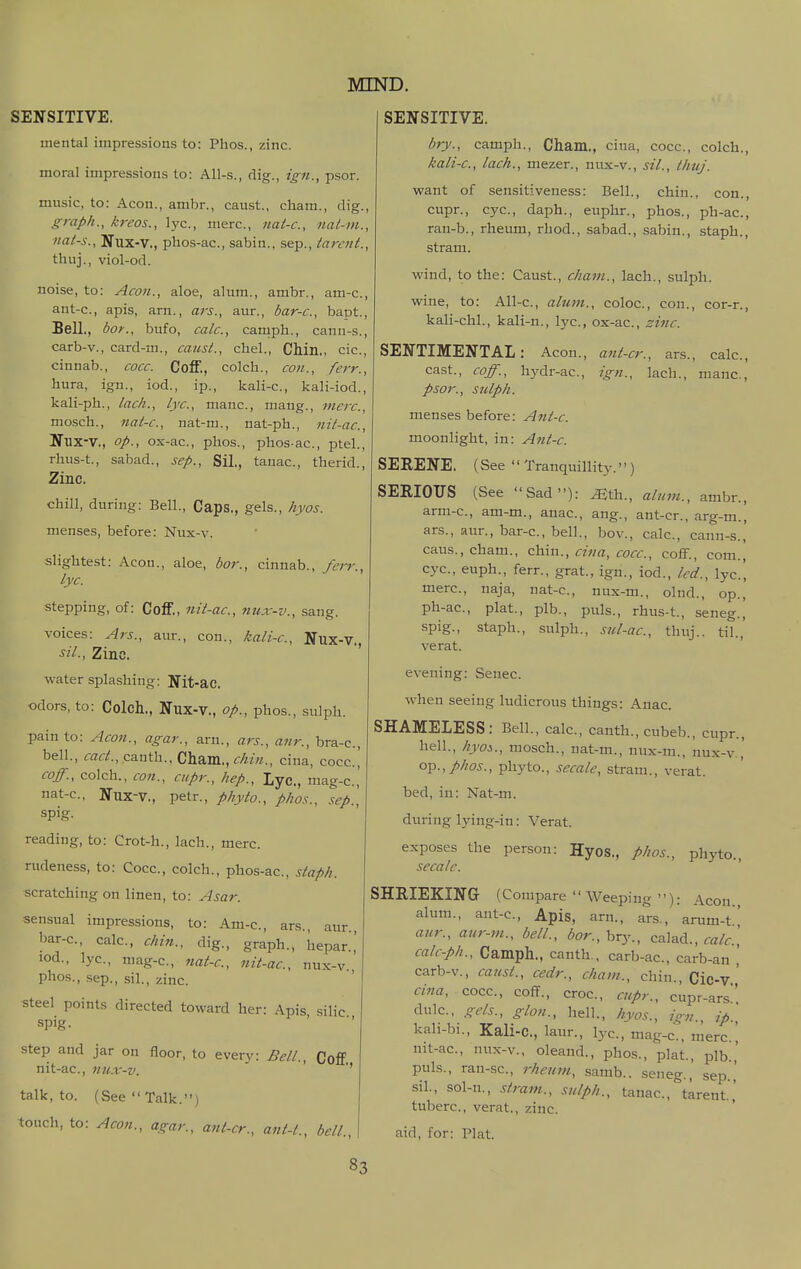 MIND.
SENSITIVE.
mental impressions to: Phos., zinc.
moral impressions to: All-s., dig., ign., psor.
music, to: Acon., ambr., caust., cham., dig.,
graph., kreos., lyc., merc., nat-c., nat-m.,
nat-s., Nux-v., phos-ac., sabin., sep., tarent.,
thuj., viol-od.
noise, to: Acon., aloe, alum., ambr., am-c.,
ant-c., apis, arn., ars., aur., bar-c., bapt.,
Bell., bor., bufo, calc., camph., cann-s.,
carb-v., card-m., caust., chel., Chin., cic.,
cinnab., cocc. Coff., colch., con., ferr.,
hura, ign., iod., ip., kali-c., kali-iod.,
kali-ph., lach., lyc., manc., mang., merc.,
mosch., nat-c., nat-m., nat-ph., nit-ac.,
Nux-v., op., ox-ac., phos., phos-ac., ptel.,
rhus-t., sabad., sep., Sil., tanac., therid.,
Zinc.
chill, during: Bell., Caps., gels., hyos.
menses, before: Nux-v.
slightest: Acon., aloe, bor., cinnab., ferr.,
lyc.
stepping, of: Coff., nit-ac., nux-v., sang.
voices: Ars., aur., con., kali-c., Nux-v.,
sil., Zinc.
water splashing: Nit-ac.
odors, to: Colch., Nux-v., op., phos., sulph.
pain to: Acon., agar., arn., ars., aur., bra-c.,
bell., cact., canth., Cham., chin., cina, cocc.,
coff., colch., con., cupr., hep., Lyc., mag-c.,
nat-c., Nux-v., petr., phyto., phos., sep.,
spig.
reading, to: Crot-h., lach., merc.
rudeness, to: Cocc., colch., phos-ac., staph.
scratching on linen, to: Asar.
sensual impressions, to: Am-c., ars., aur.,
bar-c., calc., chin., dig., graph., hepar.,
iod., lyc., mag-c., nat-c., nit-ac., nux-v.,
phos., sep., sil., zinc.
steel points directed toward her: Apis, silic.,
spig.
step and jar on floor, to every: Bell., Coff.,
nit-ac., nux-v.
talk, to. (See "Talk.")
touch, to: Acon., agar., ant-cr., ant-t., bell.,
SENSITIVE.
bry., camph., Cham., cina, cocc., colch.,
kali-c., lach., mezer., nux-v., sil., thuj.
want of sensitiveness: Bell., chin., con.,
cupr., cyc., daph., euphr., phos., ph-ac.,
ran-b., rheum, rhod., sabad., sabin., staph.,
stram.
wind, to the: Caust., cham., lach., sulph.
wine, to: All-c., alum., coloc., con., cor-r.,
kali-chl., kali-n., lyc., ox-ac., zinc.
SENTIMENTAL: Acon., ant-cr., ars., calc.,
cast., coff., hydr-ac., ign., lach., manc.,
psor., sulph.
menses before: Ant-c.
moonlight, in: Ant-c.
SERENE. (See "Tranquillity.")
SERIOUS (See "Sad"): Æth., alum., ambr.,
arm-c., am-m., anac., ang., ant-cr., arg-m.,
ars., aur., bar-c., bell., bov., calc., cann-s.,
caus., cham., chin., cina, cocc., coff., com.,
cyc., euph., ferr., grat., ign., iod., led., lyc.,
merc., naja, nat-c., nux-m., olnd., op.,
ph-ac., plat., plb., puls., rhus-t., seneg.,
spig., staph., sulph., sul-ac., thuj., til.,
verat.
evening: Senec.
when seeing ludicrous things: Anac.
SHAMELESS: Bell., calc., canth., cubeb., cupr.,
hell., hyos., mosch., nat-m., nux-m., nux-v.,
op., phos., phyto., secale, stram., verat.
bed, in: Nat-m.
during lying-in: Verat.
exposes the person: Hyos., phos., phyto.,
secale.
SHRIEKING (Compare "Weeping"): Acon.,
alum., ant-c., Apis, arn., ars., arum-t.,
aur., aur-m., bell., bor., bry., calad., calc.,
calc-ph., Camph., canth., carb-ac., carb-an.,
carb-v., caust., cedr., cham., chin., Cic-v.,
cina, cocc., coff., croc., cupr., cupr-ars.,
dulc., gels., glon., hell., hyos., ign., ip.,
kali-bi., Kali-c., laur., lyc., mag-c., merc.,
nit-ac., nux-v., oleand., phos., plat., plb.,
puls., ran-sc., rheum, samb., seneg., sep.,
sil., sol-n., stram., sulph., tanac., tarent.,
tuberc., verat., zinc.
aid, for: Plat.
83